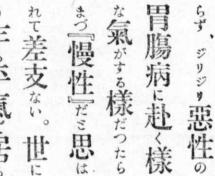 らず、ジリジリ惡性の
胃腸病に赴く樣
な氣がする樣だつたら
まづ『慢性』だと思は
れて差支ない。世に